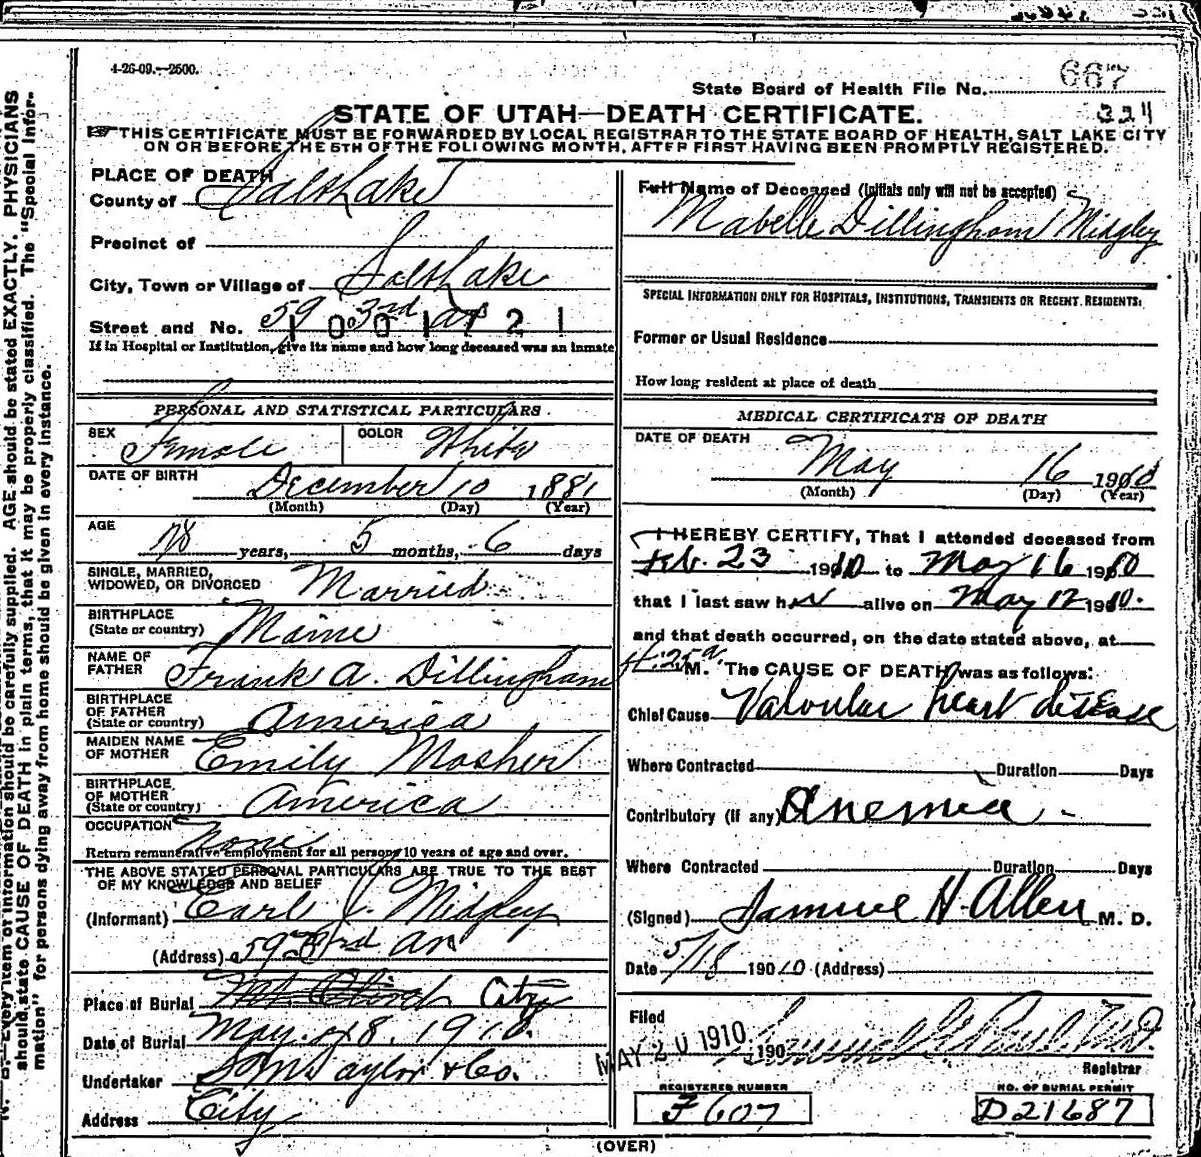 4-26-09.—2500.
State Board of Health File No. 667
224
STATE OF UTAH—DEATH CERTIFICATE.
THIS CERTIFICATE MUST BE FORWARDED BY LOCAL REGISTRAR TO THE STATE BOARD OF HEALTH, SALT LAKE CITY
ON OR BEFORE THE 5TH OF THE FOLLOWING MONTH, AFTER FIRST HAVING BEEN PROMPTLY REGISTERED.
PLACE OF DEATH
County of Salt Lake
Precinct of
City, Town or Village of Salt Lake
Street and No. 59 3rd Av
1001721
If in Hospital or Institution, give its name and how long deceased was an inmate
PERSONAL AND STATISTICAL PARTICULARS.
SEX Female COLOR White
DATE OF BIRTH December 10 1881
(Month) (Day) (Year)
AGE 28 years, 5 months, 6 days
SINGLE, MARRIED,
WIDOWED, OR DIVORCED Married
BIRTHPLACE
(State or country) Maine
NAME OF
FATHER Frank A. Dillingham
BIRTHPLACE
OF FATHER
(State or country) America
MAIDEN NAME
OF MOTHER Emily Mosher
BIRTHPLACE
OF MOTHER
(State or country) America
OCCUPATION None
Return remunerative employment for all persons 10 years of age and over.
THE ABOVE STATED PERSONAL PARTICULARS ARE TRUE TO THE BEST
OF MY KNOWLEDGE AND BELIEF
(Informant) Earl J. Midgley
(Address) 59 3rd Av
Place of Burial Mt Olivet City
Date of Burial May 18, 1910.
Undertaker S. M. Taylor & Co.
Address City
Full Name of Deceased (Initials only will not be accepted)
Mabelle Dillingham Midgley
SPECIAL INFORMATION ONLY FOR HOSPITALS, INSTITUTIONS, TRANSIENTS OR RECENT RESIDENTS:
Former or Usual Residence
How long resident at place of death
MEDICAL CERTIFICATE OF DEATH
DATE OF DEATH
May 16 1910
(Month) (Day) (Year)
I HEREBY CERTIFY, That I attended deceased from
Feb. 23 1910 to May 16 1910
that I last saw her alive on May 12 1910.
and that death occurred, on the date stated above, at
M. The CAUSE OF DEATH was as follows:
Chief Cause Valvular heart disease
Where Contracted Duration Days
Contributory (If any) Anemia
Where Contracted Duration Days
(Signed) Samuel H. Allen M. D.
Date 5/18 1910 (Address)
Filed
MAY 20 1910 190
Registrar
REGISTERED NUMBER
F 607
NO. OF BURIAL PERMIT
D21687
(OVER)
should be carefully supplied. AGE should be stated EXACTLY. PHYSICIANS
should state CAUSE OF DEATH in plain terms, that it may be properly classified. The "Special Infor-
mation" for persons dying away from home should be given in every instance.